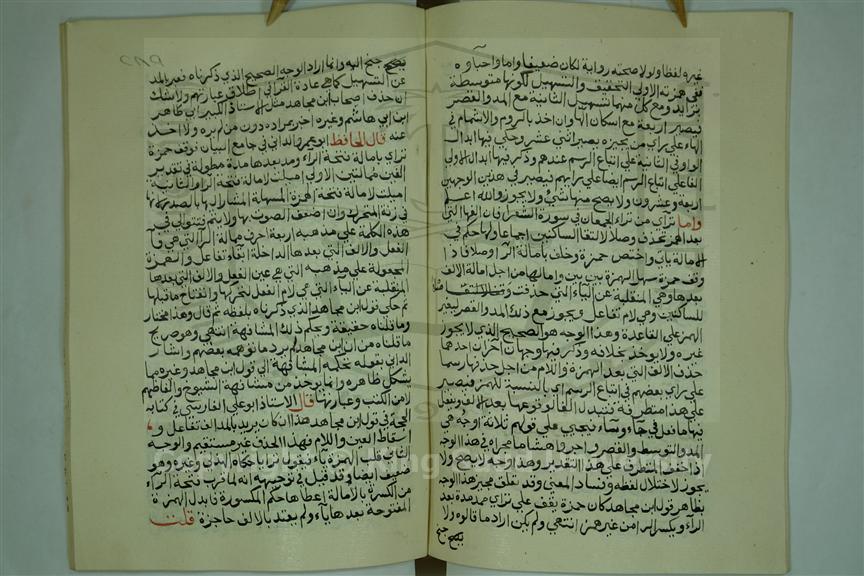 غيره لفظا ولولا صحته رواية لكان ضعيفا واما واحباؤه
ففي همزته الاولى التحقيق والتسهيل لكونها متوسطة
بزايد ومع كل منهما تسهيل الثانية مع المد والقصر
فيصير اربعة مع اسكان الهاء وان اخذ بالروم والاشمام في
الهاء على راي من يجيزه يصير اثنى عشر وحكي فيها ابدال
الواو في الثانية على اتباع الرسم عندهم وذكر فيها ابدال الاولى
الفا على اتباع الرسم ايضا على رايهم فيصير في هذين الوجهين
اربعة وعشرون ولا يصح منها شيء ولا يجوز والله اعلم
واما تراي من تراء الجمعان في سورة الشعراء فان الفها التي
بعد الهمز تحذف وصلا لالتقاء الساكنين اجماعا ولها حكم في
الامالة ياتي واختص حمزة وخلف بامالة الراء وصلا فاذا
وقف حمزة سهل الهمزة بين بين وامالها من اجل امالة الالف
بعدها وهي المنقلبة عن الياء التي حذفت وصلا
للساكنين وهي لام تفاعل ويجوز مع ذلك المد والقصر لتغير
الهمز على القاعدة وهذا الوجه هو الصحيح الذي لا يجوز
غيره ولا يوخذ بخلافه وذكر فيها وجهان آخران احدهما
حذف الالف التي بعد الهمزة واللام من اجل حذفها رسما
على راي بعضهم في اتباع الرسم اي بالنسبة للهمز فيصير
على هذا متطرفة فتبدل الفا لوقوعها بعد الف ويفعل
فيها ما فعل في جاء وشاء فيجيء على قولهم ثلاثة اوجه هي
المد والتوسط والقصر واجروا هشاما مجراه في هذا الوجه
اذا خفف المتطرف على هذا التقدير وهذا وجه لا يصح ولا
يجوز لاختلال لفظه وفساد المعنى وقد تعلق مجيز هذا الوجه
بظاهر قول ابن مجاهد كان حمزة يقف على تراي بمدة بعد
الراء ويكسر الراء من غير همز انتهى ولم يكن اراد ما قالوه ولا
يصح جنح
يصح جنح اليه وانما اراد الوجه الصحيح الذي ذكرناه فعبر بالمد
عن التسهيل كما هي عادة القراء في اطلاق عباراتهم ولا شك
ان حذاق اصحاب ابن مجاهد مثل الاستاذ الكبير ابي طاهر
ابن ابي هاشم وغيره اخبر بمراده دون من لم يره ولا اخذ
عنه قال الحافظ ابو عمرو الداني في جامع البيان فوقف حمزة
تراي بامالة فتحة الراء ومد بعدها مدة مطولة في تقدير
الفين ممالتين الاولى اميلت لامالة فتحة الراء والثانية
اميلت لامالة فتحة الهمزة المسهلة المشار اليها بالصدر لانها
في زنة المتحرك وان اضعف الصوت بها ولا يتم فيتوالى في
هذه الكلمة على مذهبه اربعة احرف ممالة الراء التي هي فاء
الفعل والالف التي بعدها الداخلة لبناء تفاعل والهمزة
المجعولة على مذهبه التي هي عين الفعل والالف التي بعدها
المنقلبة عن الياء التي هي لام الفعل لتحركها وانفتاح ما قبلها
ثم حكى قول ابن مجاهد الذي ذكرناه بلفظه ثم قال وهذا مجاز
وما قلناه حقيقة ويحكم ذلك المشافهة انتهى وهو صريح
ما قلناه من ان ابن مجاهد لم يرد ما توهمه بعضهم واشار
الداني بقوله تحكمه المشافهة الى قول ابن مجاهد وغيره مما
يشكل ظاهره وانما يوخذ من مشافهة الشيوخ والفاظهم
لا من الكتب وعباراتها قال الاستاذ ابو علي الفارسي في كتابه
الحجة في قول ابن مجاهد هذا ان كان يريد بالمد الف تفاعل و
اسقاط العين واللام فهذا الحذف غير مستقيم والوجه
الثاني قلب الهمزة ياء فيقول ترايا حكاه الداني وغيره وهو
ضعيف ايضا وقد قيل في توجيهه انه لما قرب فتحة الراء
من الكسرة بالامالة اعطاها حكم المكسورة فابدل الهمزة
المفتوحة بعدها ياء ولم يعتد بالالف حاجزة قلت